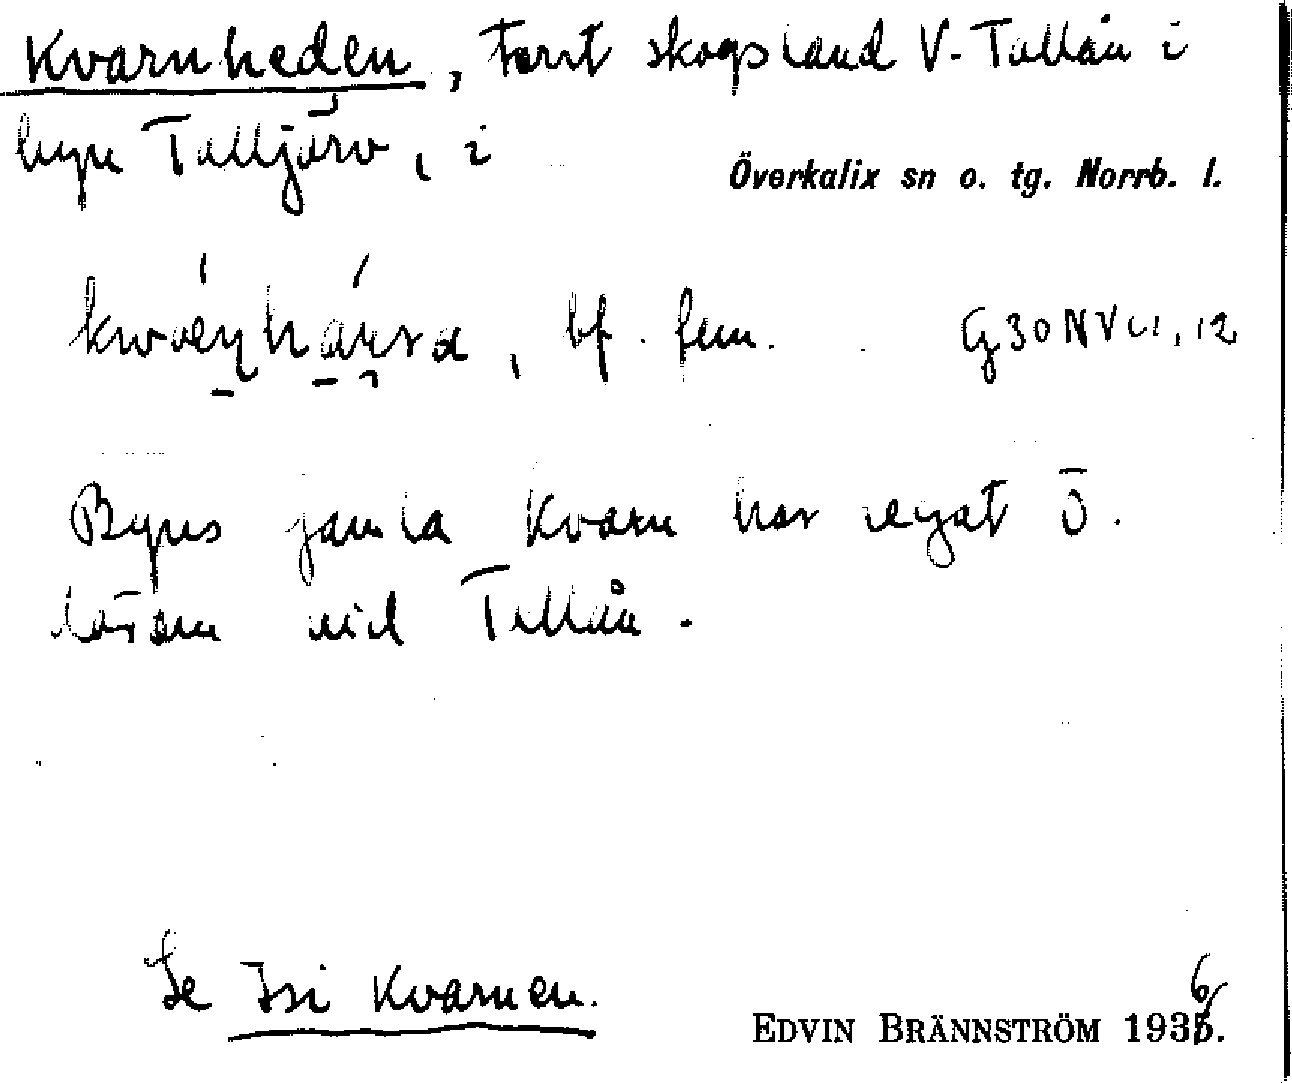 Kvarnheden, torrt skogsland V. Tallån i
byn Talljärv, i
Överkalix sn o. tg. Norrb. l.
, bf. fem. G30NV u, 12
Byns gamla kvarn har legat Ö.
vid Tallån.
Se Isi Kvarnen.
EDVIN BRÄNNSTRÖM 1936.